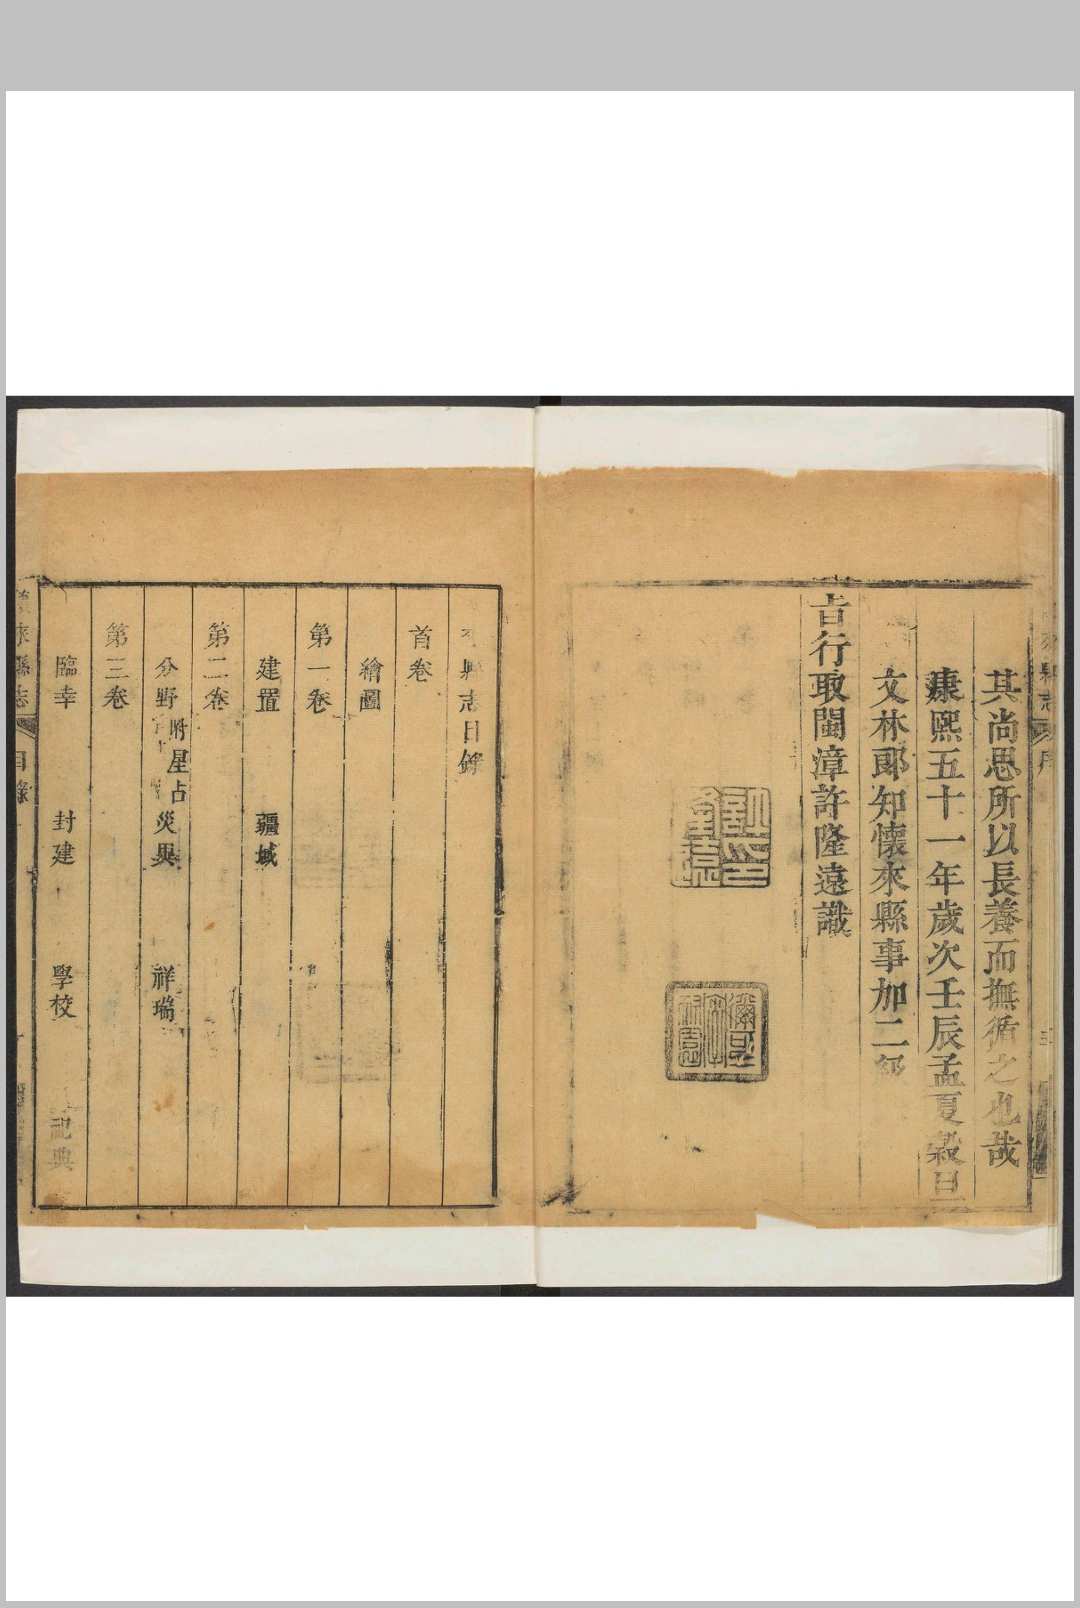 其尚思所以長養而撫循之也哉
康熙五十一年歲次壬辰孟夏穀旦
文林郎知懷來縣事加二級
旨行取閩漳許隆遠識
來縣志目錄
首卷
繪圖
第一卷
建置 疆域
第二卷
分野附星占 災異 祥瑞
第三卷
臨幸 封建 學校 祀典
來縣志 目錄